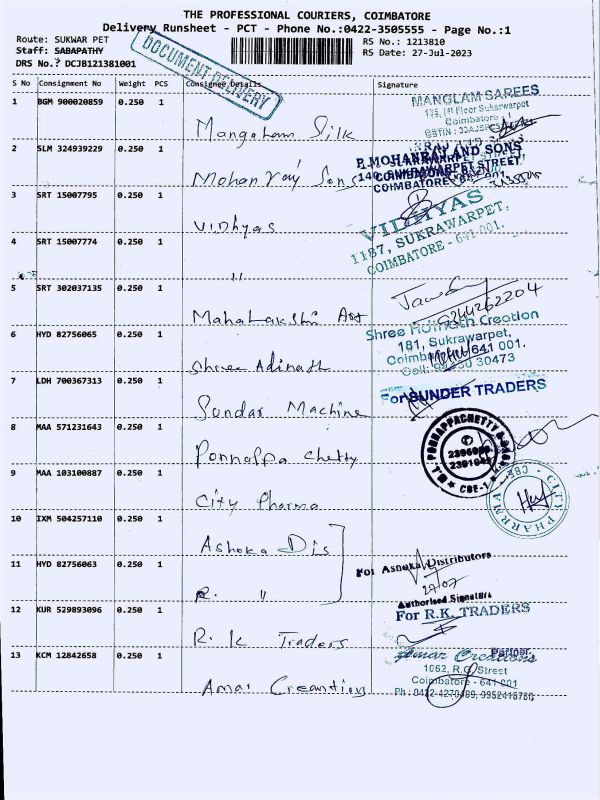 THE PROFESSIONAL COURIERS, COIMBATORE
Delivery Runsheet - PCT - Phone No.:0422-3505555 - Page No.:1
Route: SUKWAR PET
RS No.: 1213810
Staff: SABAPATHY
RS Date: 27-Jul-2023
DRS No.? DCJB121381001
DOCUMENT DELIVERY
S No Consignment No Weight PCS Consignee Details Signature
1 BGM 900020859 0.250 1
Mangalam Silk
MANGLAM SAREES
Floor Sukarwarpet
Coimbatore
GSTIN : 33AJSPC
2 SLM 324939229 0.250 1
Mohan Raj Sons
P. MOHANRAJ AND SONS
140, SUKRAWARPET STREET
COIMBATORE
3 SRT 15007795 0.250 1
Vidhyas
VIDHYAS
1187, SUKRAWARPET,
COIMBATORE - 641 001.
4 SRT 15007774 0.250 1
"
5 SRT 302037135 0.250 1
MahaLakshi Art
9244262204
6 HYD 82756065 0.250 1
Shree Adinath
Shree Creation
181, Sukrawarpet,
641 001.
30473
7 LDH 700367313 0.250 1
Sundar Machine
For SUNDER TRADERS
8 MAA 571231643 0.250 1
Ponnappa Chetty
PONNAPPACHETTY
CBE-1
9 MAA 103100887 0.250 1
City Pharma
CITY PHARMA
CBE
10 IXM 504257110 0.250 1
Ashoka Dis
11 HYD 82756063 0.250 1
R. "
For Ashoka Distributors
27/07
Authorised Signature
12 KUR 529893096 0.250 1
R. K Traders
For R.K. TRADERS
Partner
13 KCM 12842658 0.250 1
Amar Creamtions
Amar Creations
1062, R.G. Street
Coimbatore - 641 001
Ph : 0422-4270489, 9952418766